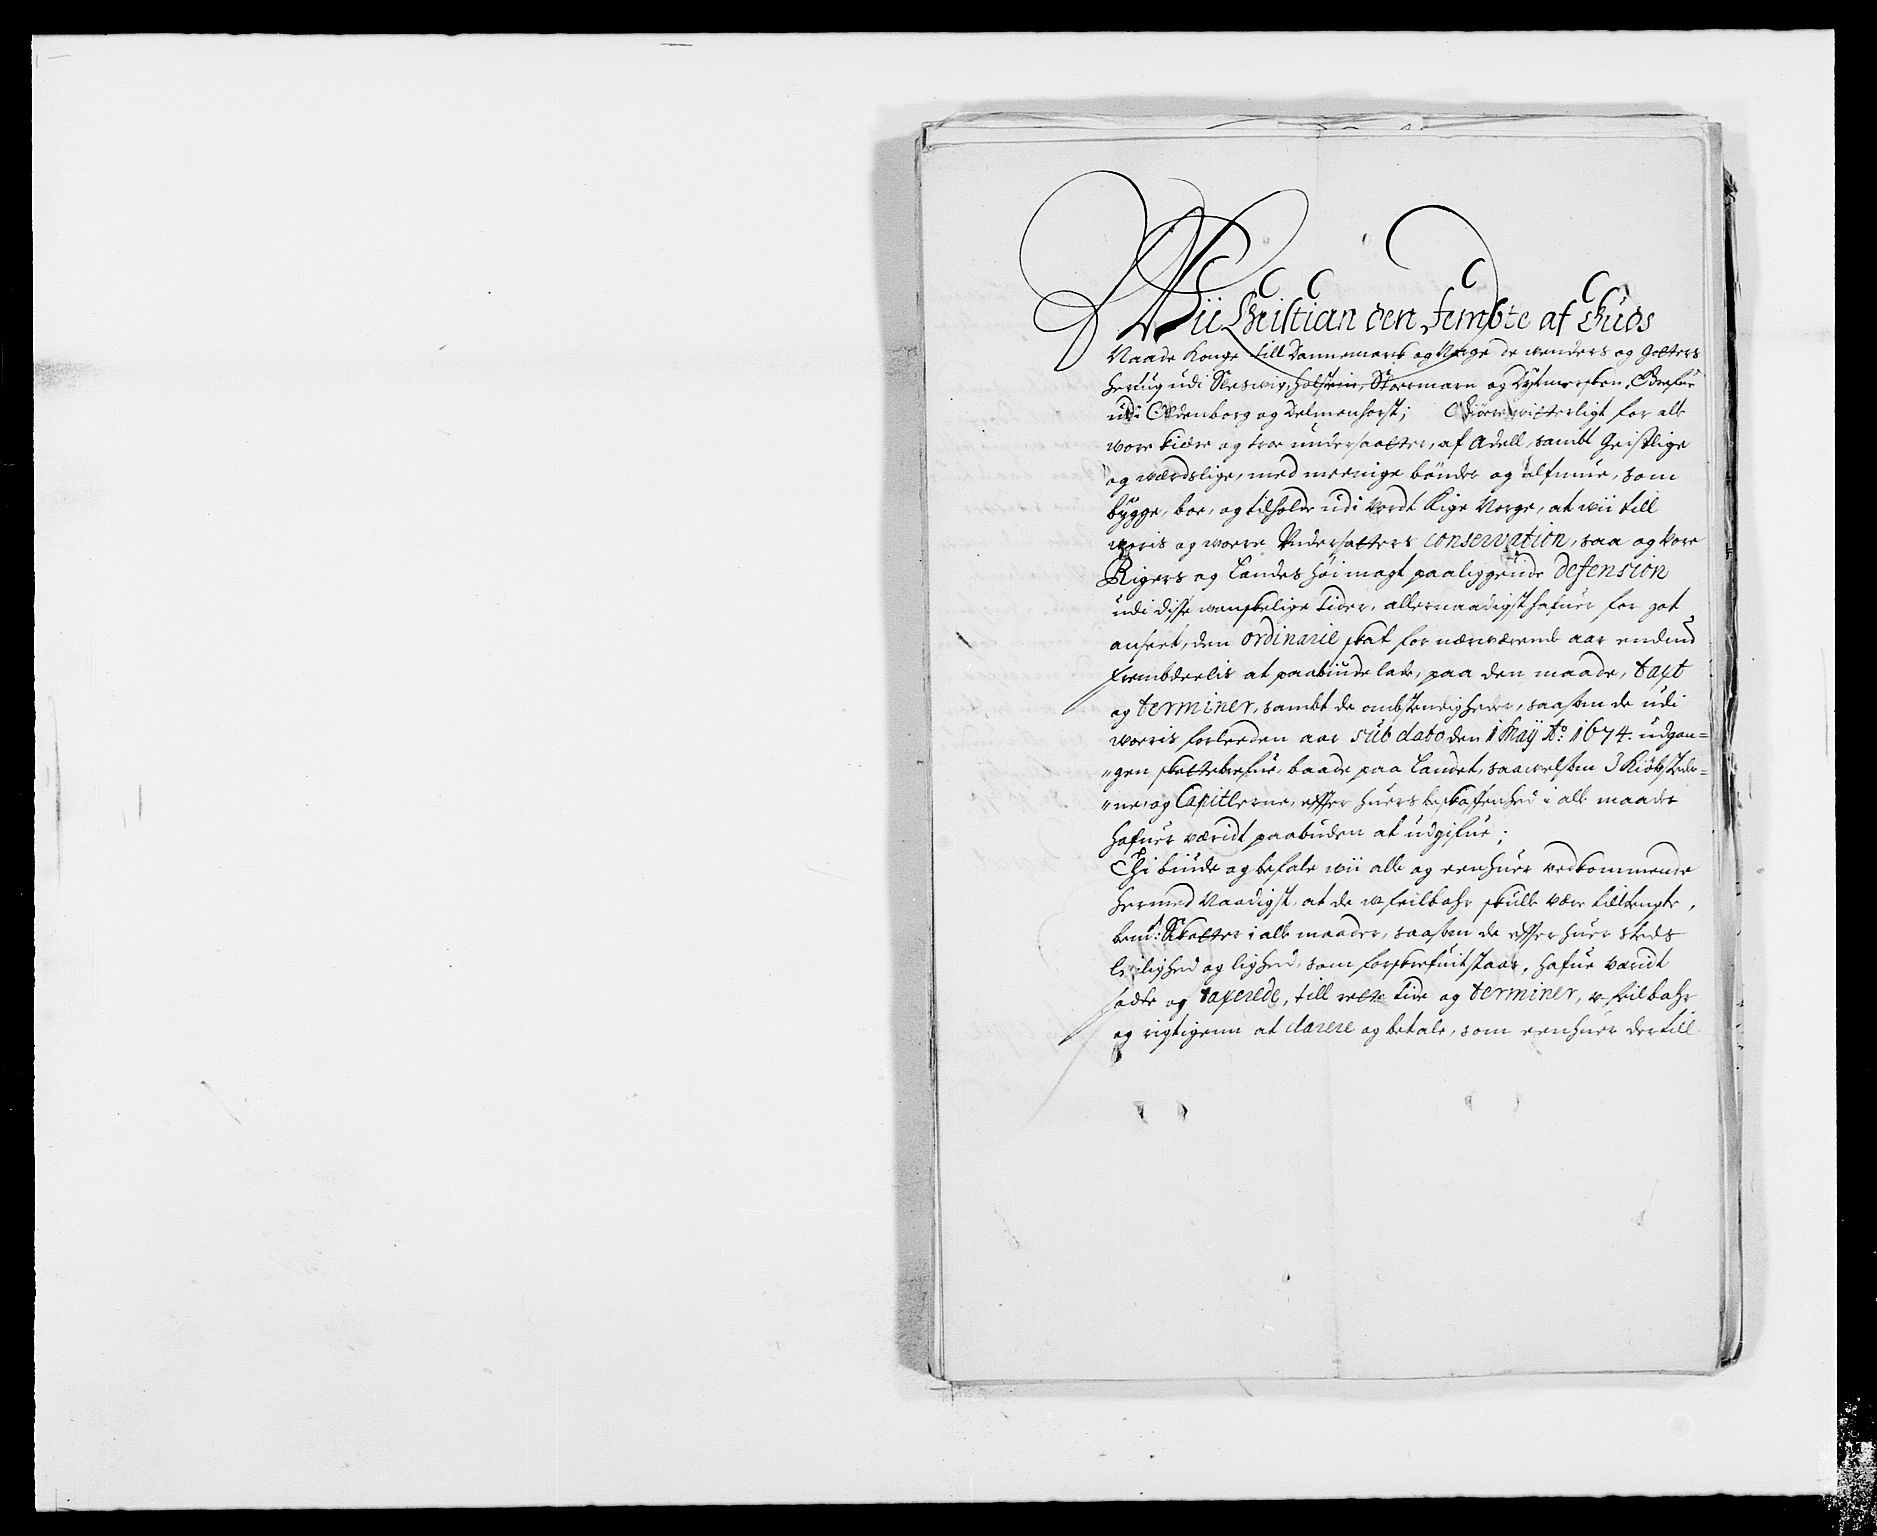 Wii Christian den Fembte af Guds
Naade Konge till Dannemark og Norge de wenders og Gotters
Hertug udi Sleswig, Holstein, Stormarn og Dytmersken, Grefue
udi Oldenborg og Delmenhorst; Giøre witterligt for alle
wore kiære og troe undersaatter, af Adell, sambt Geistlige
og wærdslige, med meenige bönder og Almue, som
bygge, boe, og tilholde udi Vordt Rige Norge, at wii till
woris og worre Undersatters conservation, saa og Vore
Rigers og Landes höimagt paaliggende defension
udi disse wanskelige tider, allernaadigst hafuer for got
anseet, den ordinarie skat for nærwærende aar endnu
frembdeelis at paabiude lade, paa den maade, taxt
og terminer, sambt de ombstendigheder, saasom de udi
worris forleeden aar sub dato den 1 Maij Ao: 1674. udgan=
"gen skattebrefue, baade paa Landet, saawelsom I Kiöbstede=
"ne, og Capitlerne, effter huers beskaffenhed i alle maader
hafuer væridt paabuden at udgifue;
Thi biude og befale wii alle og eenhuer vedkommende
hermed Naadigst, at de ufeilbahr skulle være tiltengte,
bemt: Skatter i alle maader, saasom de effter huer steds
leilighed og lighed, som forskrefuit staar, hafue væridt
satte og taxerede, till rette tide og terminer, ufeilbahr
og rigtigenn at clarere og betale, som eenhuer dertill